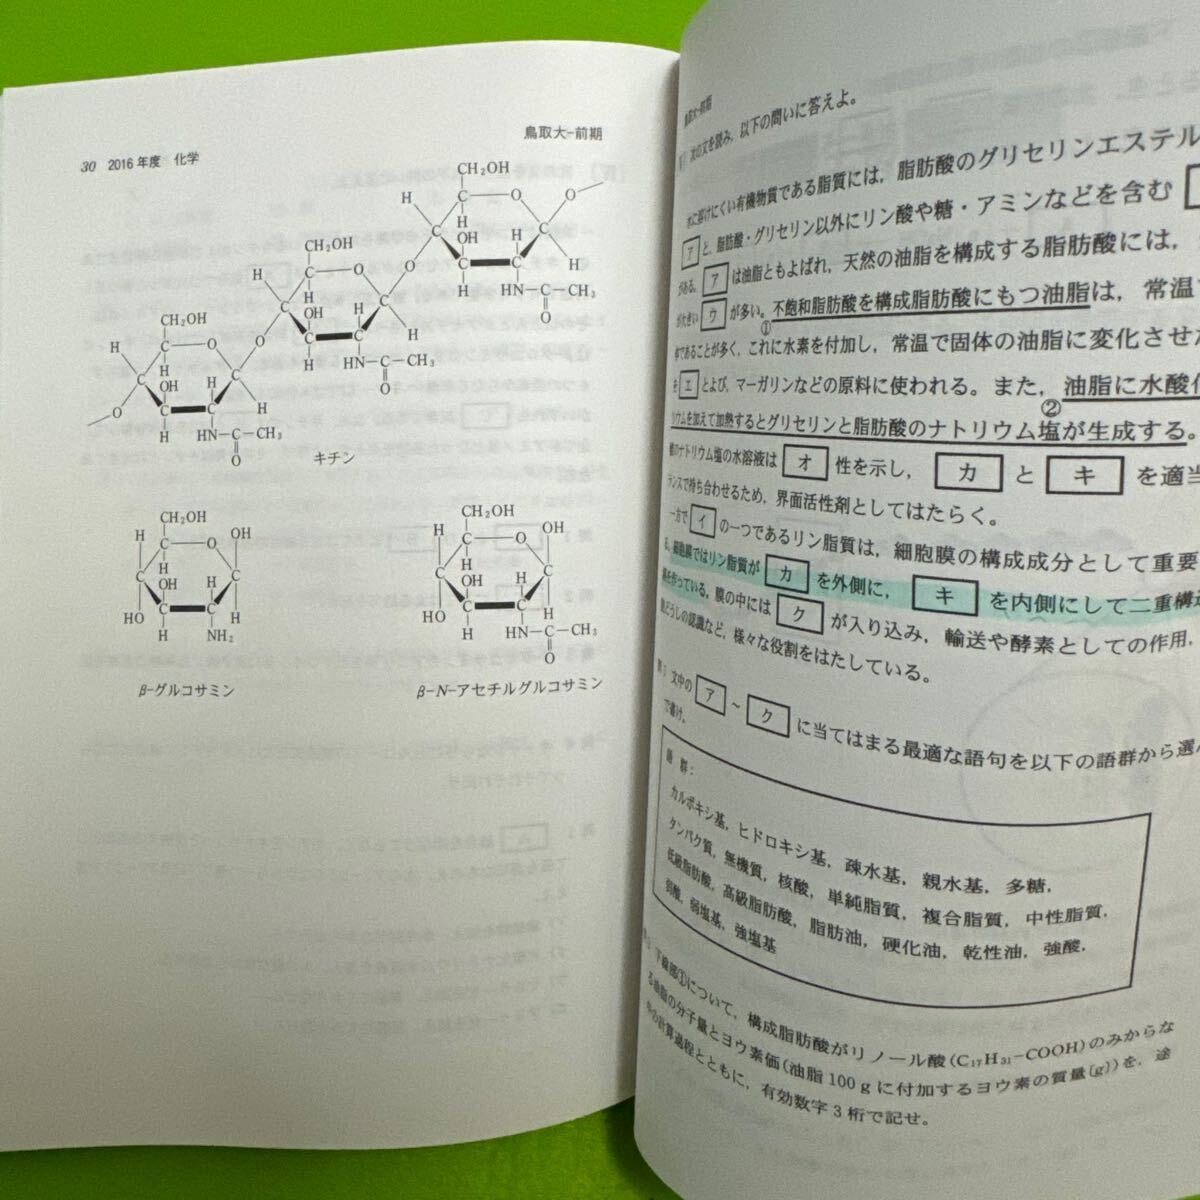 30 2016年度 化学
鳥取大-前期
CH₂OH
O
O
H
H
H
OH
H
HN-C-CH₃
O
CH₂OH
H
O
H
H
OH
H
O
H
HN-C-CH₃
O
CH₂OH
H
O
O
H
OH
H
H
O
H
HN-C-CH₃
O
キチン
CH₂OH
H
O
OH
H
OH
H
HO
H
H
NH₂
β-グルコサミン
CH₂OH
H
O
OH
H
OH
H
HO
H
H
HN-C-CH₃
O
β-N-アセチルグルコサミン
鳥取大-前期
次の文を読み，以下の問いに答えよ。
水に溶けにくい有機物質である脂質には，脂肪酸のグリセリンエステル
ア と，脂肪酸・グリセリン以外にリン酸や糖・アミンなどを含む
がある。 ア は油脂ともよばれ，天然の油脂を構成する脂肪酸には，
が大きい ウ が多い。①不飽和脂肪酸を構成脂肪酸にもつ油脂は，常温で
体であることが多く，これに水素を付加し，常温で固体の油脂に変化させた
を エ とよび，マーガリンなどの原料に使われる。また，②油脂に水酸化
リウムを加えて加熱するとグリセリンと脂肪酸のナトリウム塩が生成する。
酸のナトリウム塩の水溶液は オ 性を示し， カ と キ を適当
ランスで持ち合わせるため，界面活性剤としてはたらく。
一方で イ の一つであるリン脂質は，細胞膜の構成成分として重要
る。細胞膜ではリン脂質が カ を外側に， キ を内側にして二重構造
膜を作っている。膜の中には ク が入り込み，輸送や酵素としての作用，
胞どうしの認識など，様々な役割をはたしている。
問1 文中の ア ～ ク に当てはまる最適な語句を以下の語群から選ん
で書け。
語 群：
カルボキシ基，ヒドロキシ基，疎水基，親水基，多糖，
タンパク質，無機質，核酸，単純脂質，複合脂質，中性脂質，
低級脂肪酸，高級脂肪酸，脂肪油，硬化油，乾性油，強酸，
弱酸，弱塩基，強塩基
下線部①について，構成脂肪酸がリノール酸(C₁₇H₃₁-COOH)のみからな
る油脂の分子量とヨウ素価(油脂100gに付加するヨウ素の質量〔g〕)を，途
中の計算過程とともに，有効数字3桁で記せ。